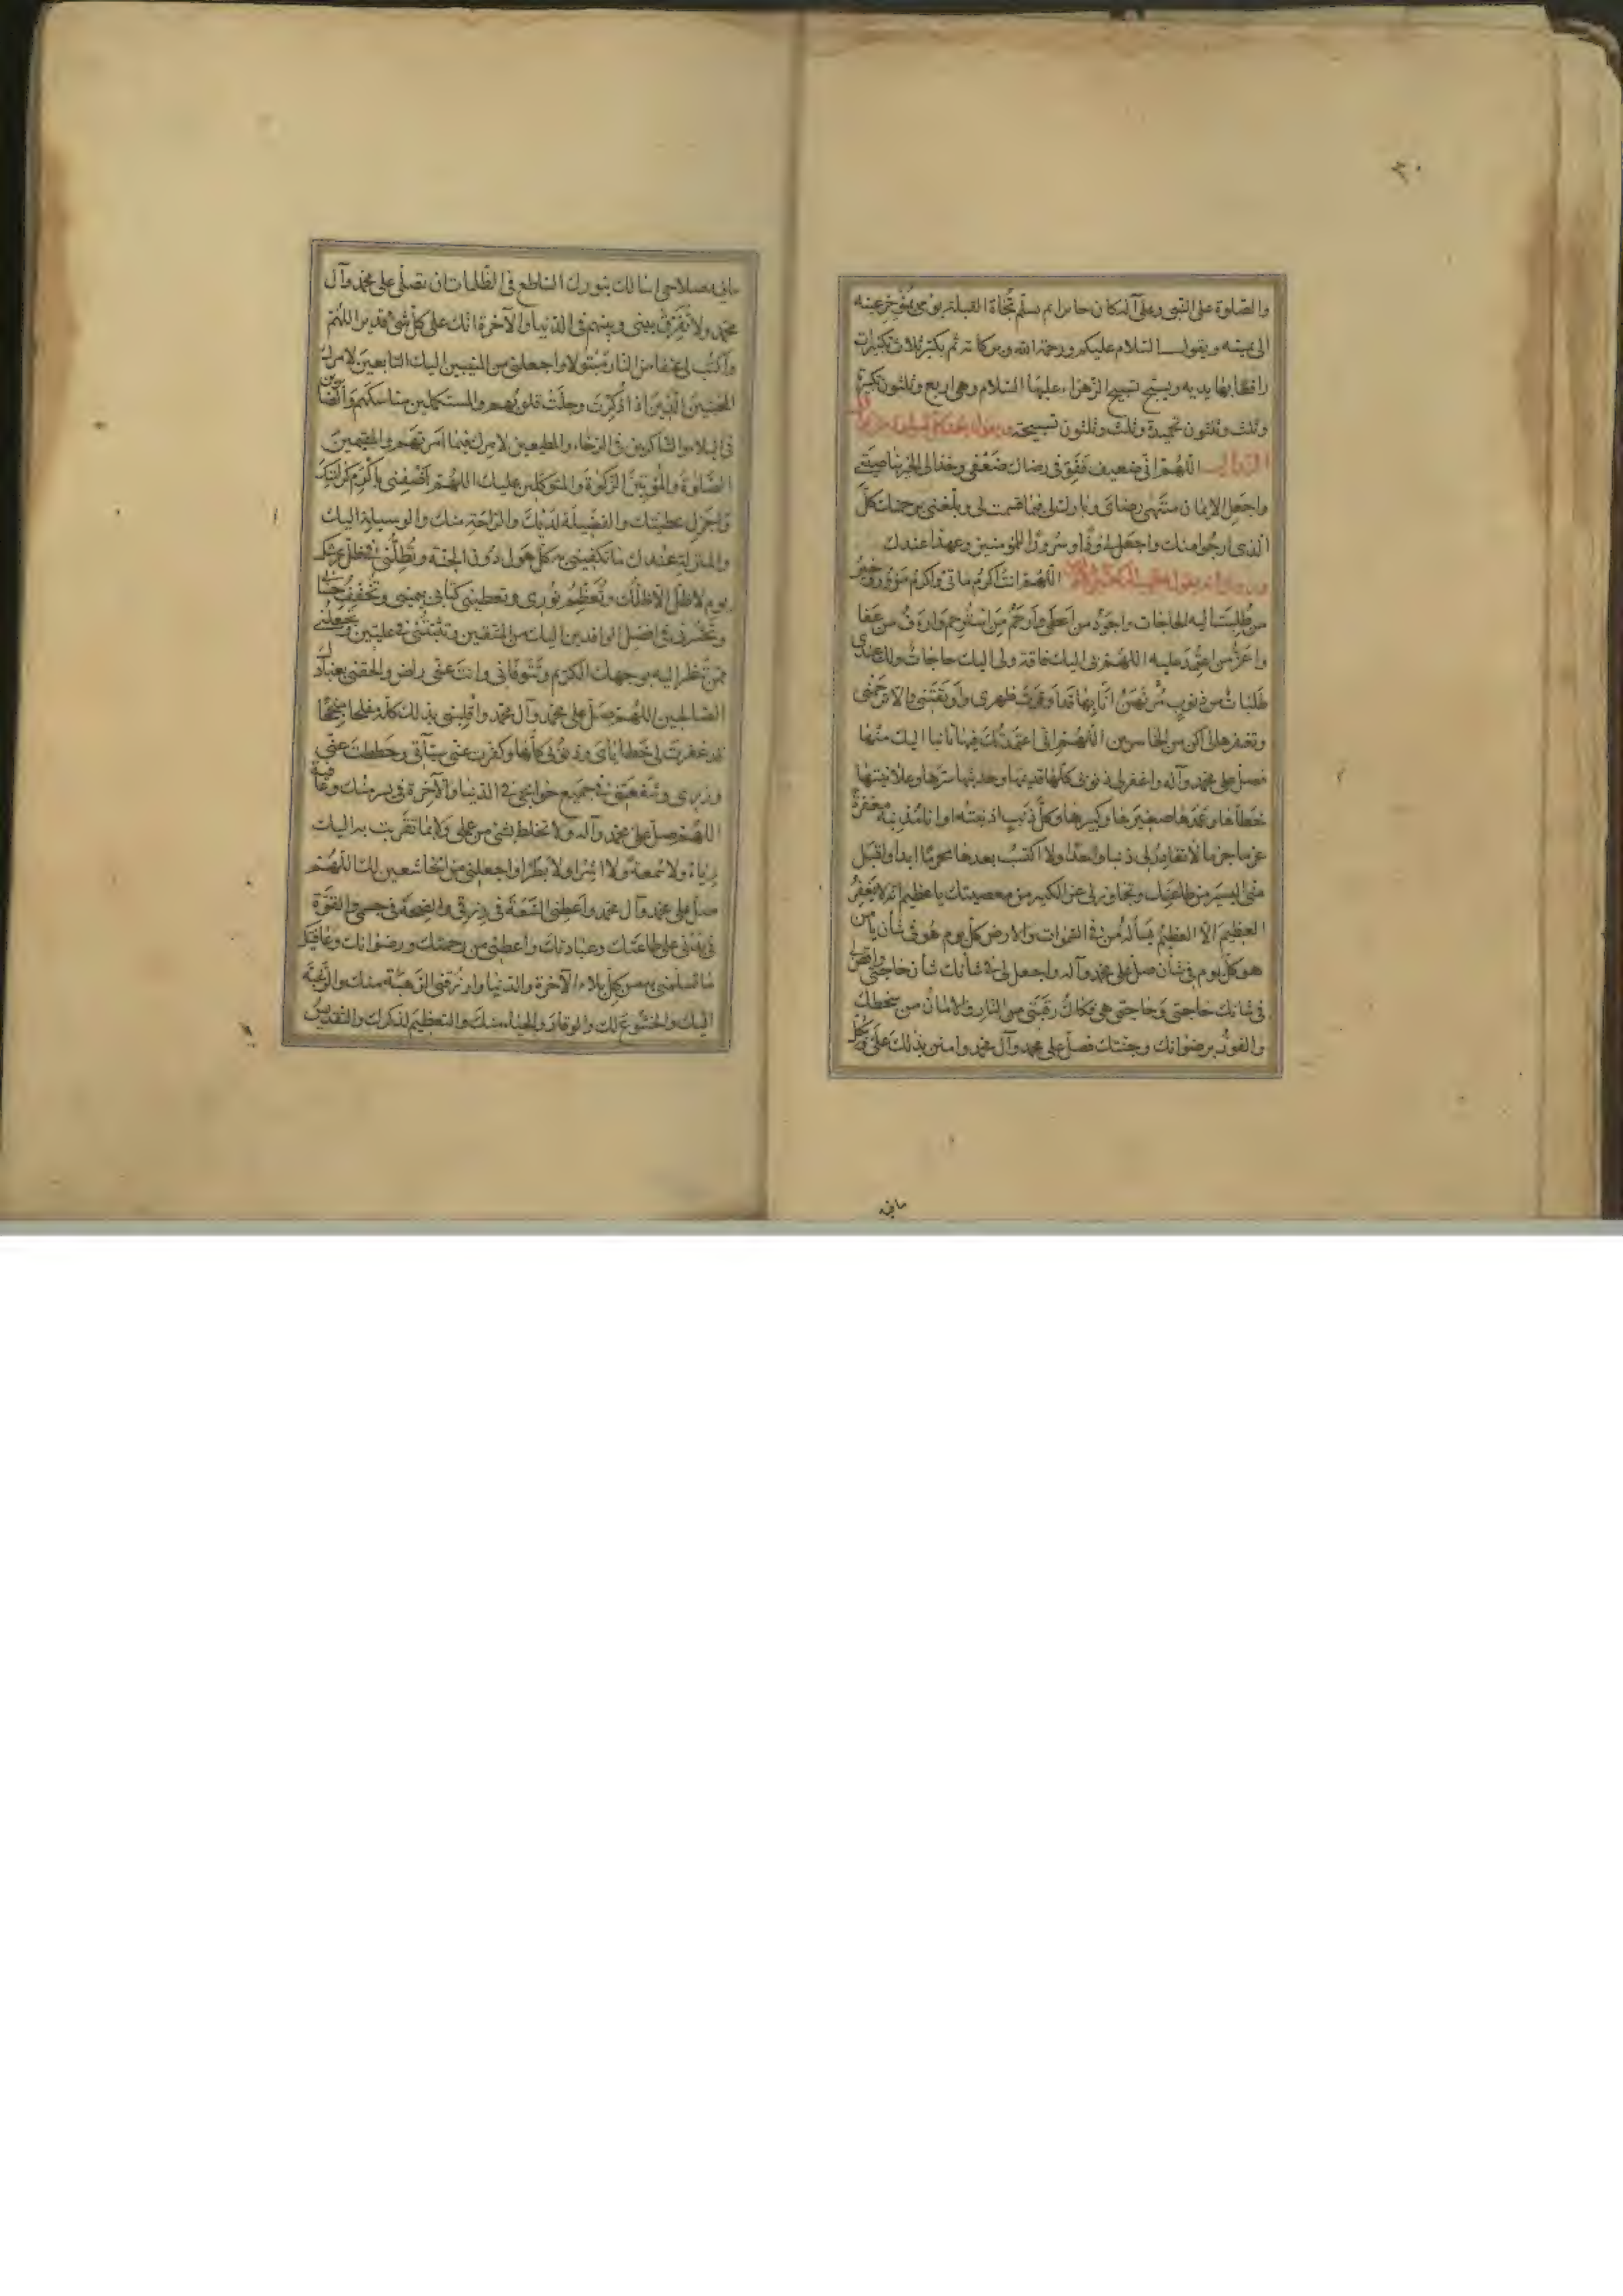 ٣٠
والصّلوة على النبي وعلى آله كان جائزا ثم يسلم تجاه القبلة يومى بمؤخر عينه
الى يمينه ويقول السلام عليكم ورحمة الله وبركاته ثم يكبر ثلاث تكبيرات
رافعا بها يديه ويسبح تسبيح الزهراء عليها السلام وهي اربع وثلثون تكبيرة
وثلث وثلثون تحميدة وثلث وثلثون تسبيحة ويقول
اللهم اني ضعيف فقو في رضاك ضعفي وخذ الى الخير بناصيتي
واجعل الايمان منتهى رضاي وبارك لي فيما قسمت لي وبلغني برحمتك كلّ
الذي ارجو منك واجعل لي ودّا وسرورا للمؤمنين وعهدا عندك
اللهم انت اكرم ماتي واكرم مزور وخير
من طلبت اليه الحاجات واجود من اعطى وارحم من استرحم وارءف من عفا
واعزّ من اعتمد عليه اللهم بي اليك فاقة ولي اليك حاجات ولك عندي
طلبات من ذنوب انا بها قد اوقرت ظهري واوبقتني والا ترحمني
وتغفرها لي اكن من الخاسرين اللهم اني اعتمدتك فيها تائبا اليك منها
فصل على محمد وآله واغفر لي ذنوبي كلها قديمها وحديثها سرها وعلانيتها
خطأها وعمدها صغيرها وكبيرها وكلّ ذنب اذنبته او انا مذنبه مغفرة
عزما جزما لا تغادر لي ذنبا واحدا ولا اكتسب بعدها محرما ابدا واقبل
منّي اليسير من طاعتك وتجاوز لي عن الكثير من معصيتك يا عظيم انه لا يغفر
العظيم الّا العظيم يسأله من في السموات والارض كل يوم هو في شأن يا من
هو كلّ يوم في شأن صل على محمد وآله واجعل لي في شأنك شأن حاجتي واقض
في شأنك حاجتي وحاجتي هي فكاك رقبتي من النار والامان من سخطك
والفوز برضوانك وجنتك فصل على محمد وآل محمد وامنن بذلك علي وبكل
مافيه
ما فيه صلاحي اسالك بنورك الساطع في الظلمات ان تصلّي على محمد وآل
محمد ولا تفرق بيني وبينهم في الدنيا والآخرة انك على كلّ شئ قدير اللهم
واكتب لي عتقا من النار مبتولا واجعلني من المنيبين اليك التابعين لامرك
المخبتين الذين اذا ذكرت وجلت قلوبهم والمستكملين مناسكهم والصابرين
في البلاء والشاكرين في الرخاء والمطيعين لامرك فيما امرتهم والمقيمين
الصلوة والمؤتين الزكوة والمتوكلين عليك اللهم اضفني باكرم كرامتك
واجزل عطيتك والفضيلة لديك والراحة منك والوسيلة اليك
والمنزلة عندك ما تكفيني به كلّ هول دون الجنة وتظلّني في ظلّ عرشك
يوم لا ظلّ الا ظلّك وتعظم نوري وتعطيني كتابي بيميني وتخفف حسابي
وتحشرني في افضل الوافدين اليك من المتقين وتثبتني في عليين وتجعلني
ممن تنظر اليه بوجهك الكريم وتتوفاني وانت عني راض والحقني بعبادك
الصالحين اللهم صل على محمد وآل محمد واقلبني بذلك كله مفلحا منجحا
قد غفرت لي خطاياي وذنوبي كلها وكفرت عنّي سيآتي وحططت عني
وزري وشفعتني في جميع حوائجي في الدنيا والآخرة في يسر منك وعافية
اللهم صل على محمد وآله ولا تخلط بشئ من عملي ولا بما تقربت به اليك
رياء ولا سمعة ولا اشرا ولا بطرا واجعلني من الخاشعين لك اللهم
صل على محمد وآل محمد واعطني السعة في رزقي والصحة في جسمي والقوة
في بدني على طاعتك وعبادتك واعطني من رحمتك ورضوانك وعافيتك
ما تسلمني به من كل بلاء الآخرة والدنيا وارزقني الرهبة منك والرغبة
اليك والخشوع لك والوقار والحياء منك والتعظيم لذكرك والتقديس